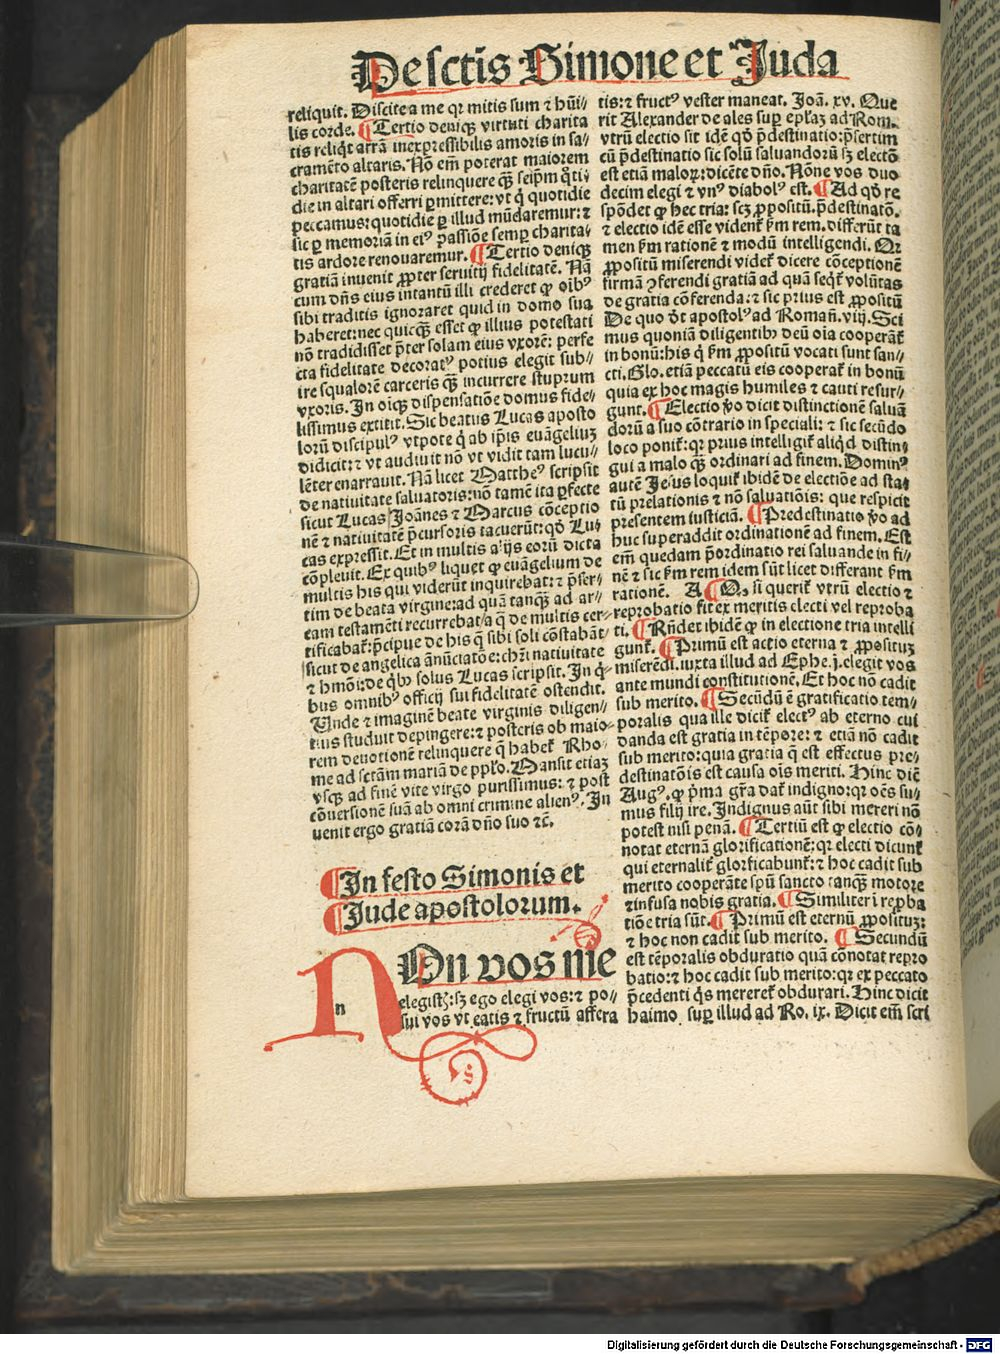 De sctis Simone et Juda
reliquit. Discite a me qꝛ mitis sum ⁊ hũi//
lis corde. ¶ Tertio deniqꝫ virtuti charita
tis reliq̇t arrã inexpressibilis amoris in sa//
cramẽto altaris. Nõ em̃ poterat maiorem
charitatẽ posteris relinquere qꝫ̃ seip̃m q̊ti//
die in altari offerri ꝑmittere: vt q̇ quotidie
peccamus: quotidie ꝑ illud mũdaremur: ⁊
sic ꝑ memoriã in ei⁹ passiõe semꝑ charita//
tis ardore renouaremur. ¶ Tertio deniqꝫ
gratiã inuenit ꝓpter seruitij fidelitatẽ. Nã
cum dñs eius intantũ illi crederet ꝙ oĩb⁹
sibi traditis ignoraret quid in domo sua
haberet: nec quicqꝫ̃ esset ꝙ illius potestati
nõ tradidisset p̃ter solam eius vxorẽ: perfe
cta fidelitate decorat⁹ potius elegit sub//
ire squalorẽ carceris qꝫ̃ incurrere stuprum
vxoris. In oĩqꝫ dispensatiõe domus fide//
lissimus extitit. Sic beatus Lucas aposto
lorũ discipul⁹ vtpote q̇ ab ip̃is euãgeliuꝫ
didicit: ⁊ vt audiuit nõ vt vidit tam lucu//
lẽter enarrauit. Nã licet Matthe⁹ scripsit
de natiuitate saluatoris: nõ tamẽ ita ꝑfecte
sicut Lucas Joãnes ⁊ Marcus cõceptio
nẽ ⁊ natiuitatẽ p̃cursoris tacuerũt: qd̓ Lu//
cas expressit. Et in multis alijs eorũ dicta
cõpleuit. Ex quib⁹ liquet ꝙ euãgelium de
multis his qui viderũt inquirebat: ⁊ p̃ser//
tim de beata virgine: ad quã tanqꝫ̃ ad ar//
cam testamẽti recurrebat / a q̃ de multis cer//
tificabat̃: p̃cipue de his q̃ sibi soli cõstabãt
sicut de angelica ãnũciatõe: chr̃i natiuitate
⁊ hm̃õi: de q̇bꝫ solus Lucas scripsit. In q̇//
bus omnib⁹ officij sui fidelitatẽ ostendit.
Unde ⁊ imaginẽ beate virginis diligen//
tius studuit depingere: ⁊ posteris ob maio//
rem deuotionẽ relinquere q̃ habet̃ Rho//
me ad sctãm mariã de ppl̃o. Mansit etiaꝫ
vsqꝫ ad finẽ vite virgo purissimus: ⁊ post
cõuersionẽ suã ab omni crimine alien⁹. In
uenit ergo gratiã corã dño suo ⁊c̃.
¶ In festo Simonis et
¶ Jude apostolorum.
n
NOn vos me
elegistꝭ: sꝫ ego elegi vos: ⁊ po//
sui vos vt eatis ⁊ fructũ affera
tis: ⁊ fruct⁹ vester maneat. Joã. xv. Que
rit Alexander de ales suꝑ ep̃las ad Rom.
vtrũ electio sit idẽ qd̓ p̃destinatio: p̃sertim
cũ p̃destinatio sic solũ saluandorũ sꝫ electõ
est etiã maloꝝ: dicẽte dño. Nõne vos duo
decim elegi ⁊ vn⁹ diabol⁹ est. ¶ Ad qd̓ re
spõdet ꝙ hec tria: scꝫ ꝓpositũ. p̃destinatõ.
⁊ electio idẽ esse vident̃ ẜm rem. differũt ta
men ẜm rationẽ ⁊ modũ intelligendi. Qꝛ
ꝓpositũ miserendi videt̃ dicere cõceptionẽ
firmã ꝯferendi gratiã ad quã seqt̃ volũtas
de gratia cõferenda: ⁊ sic prius est ꝓpositũ
De quo d̓t apostol⁹ ad Romañ. viij. Sci
mus quoniã diligentibꝫ deũ oĩa cooperãt̃
in bonũ: his q̇ ẜm ꝓpositũ vocati sunt san//
cti. Glo. etiã peccatũ eis cooperat̃ in bonũ
quia ex hoc magis humiles ⁊ cauti resur//
gunt. ¶ Electio ṽo dicit distinctionẽ saluã
dorũ a suo cõtrario in speciali: ⁊ sic secũdo
loco ponit̃: qꝛ prius intelligit̃ aliq̇d distin//
gui a malo qꝫ̃ ordinari ad finem. Domin⁹
autẽ Jesus loquit̃ ibidẽ de electiõe ad sta//
tũ prelationis ⁊ nõ saluatiõis: que respicit
presentem iusticiã. ¶ Predestinatio ṽo ad
huc superaddit ordinationẽ ad finem. Est
em̃ quedam p̃ordinatio rei saluande in fi//
nẽ ⁊ sic ẜm rem idem sũt licet differant ẜm
rationẽ. A ¶ Qꝫ si querit̃ vtrũ electio ⁊
reprobatio fit ex meritis electi vel reproba
ti. ¶ Rñdet ibidẽ ꝙ in electione tria intelli
gunt̃. ¶ Primũ est actio eterna ⁊ ꝓposituꝫ
miserẽdi. iuxta illud ad Ephe. j. elegit vos
ante mundi constitutionẽ. Et hoc nõ cadit
sub merito. ¶ Secũdũ ẽ gratificatio tem//
poralis qua ille dicit̃ elect⁹ ab eterno cui
danda est gratia in tẽpore: ⁊ etiã nõ cadit
sub merito: quia gratia q̃ est effectus pre//
destinatõis est causa oĩs meriti. Hinc dic̃
Aug⁹. ꝙ p̃ma gr̃a dat̃ indigno: qꝛ oẽs su//
mus filij ire. Indignus aũt sibi mereri nõ
potest nisi penã. ¶ Tertiũ est ꝙ electio cõ//
notat eternã glorificationẽ: qꝛ electi dicunt̃
qui eternalit̃ glorificabunt̃: ⁊ hoc cadit sub
merito cooperãte spũ sancto tanqꝫ̃ motore
⁊ infusa nobis gratia. ¶ Similiter i reꝓba
tiõe tria sũt. ¶ Primũ est eternũ ꝓposituꝫ:
⁊ hoc non cadit sub merito. ¶ Secundũ
est tẽporalis obduratio quã cõnotat repro
batio: ⁊ hoc cadit sub merito: qꝛ ex peccato
p̃cedenti q̇s mereret̃ obdurari. Hinc dicit
haimo suꝑ illud ad Ro. ix. Dicit em̃ scri
Digitalisierung gefördert durch die Deutsche Forschungsgemeinschaft - DFG